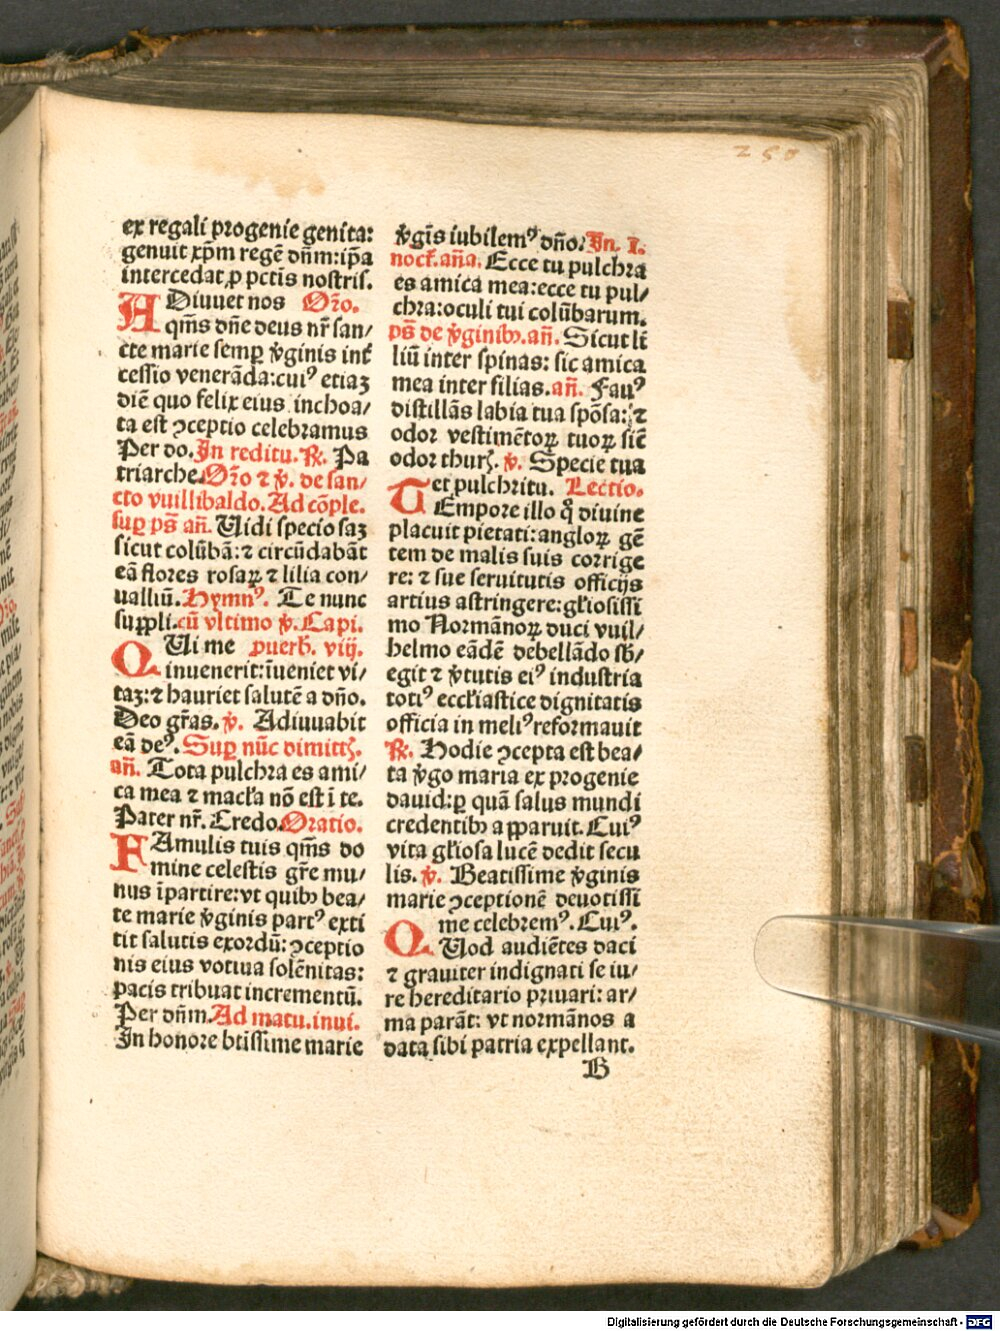 250
ex regali progenie genita:
genuit xp̄m regē dn̄m: ip̄a
intercedat ꝓ pctīs nostris.
ADiuuet nos Or̄o.
qm̄s dn̄e deus nr̄ san/
cte marie semꝑ v̄ginis int̄
cessio venerāda: cuiꝰ etiaꝫ
diē quo felix eius inchoa/
ta est ꝯceptio celebramus
Per do. In reditu. ℟. Pa
triarche. Or̄o ⁊ v̄. de san/
cto vuillibaldo. Ad cōple.
suꝑ ps̄ an̄. Uidi speciosaꝫ
sicut colūbā: ⁊ circūdabāt
eā flores rosaꝝ ⁊ lilia con/
ualliū. Hymnꝰ. Te nunc
suppli. cū vltimo v̄. Capi.
QUi me puerb̄. viij.
inuenerit: īueniet vi/
taꝫ: ⁊ hauriet salutē a dn̄o.
Deo gr̄as. v̄. Adiuuabit
eā deꝰ. Suꝑ nūc dimittꝭ.
an̄. Tota pulchra es ami/
ca mea ⁊ macl̄a nō est ī te.
Pater nr̄. Credo. Oratio.
FAmulis tuis qm̄s do
mine celestis gr̄e mu/
nus īpartire: vt quibꝰ bea/
te marie v̄ginis partꝰ exti
tit salutis exordiū: ꝯceptio
nis eius votiua solēnitas:
pacis tribuat incrementū.
Per dn̄m. Ad matu. inui.
In honore btīssime marie
v̄gīs iubilemꝰ dn̄o. In. I.
noct̄. an̄a. Ecce tu pulchra
es amica mea: ecce tu pul/
chra: oculi tui colūbarum.
ps̄ de v̄ginibꝰ. an̄. Sicut li
liū inter spinas: sic amica
mea inter filias. an̄. Fauꝰ
distillās labia tua spōsa: ⁊
odor vestimētoꝝ tuoꝝ sic̄
odor thurꝭ. v̄. Specie tua
et pulchritu. Lectio.
TEmpore illo q̄ diuine
placuit pietati: angloꝝ gē
tem de malis suis corrige
re: ⁊ sue seruitutis officijs
artius astringere: gl̄iosissi
mo Normānoꝝ duci vuil/
helmo eādē debellādo sb̄/
egit ⁊ v̄tutis eiꝰ industria
totiꝰ eccl̄iastice dignitatis
officia in meliꝰ reformauit
℟. Hodie ꝯcepta est bea/
ta v̄go maria ex progenie
dauid: ꝑ quā salus mundi
credentibꝰ apparuit. Cuiꝰ
vita gl̄iosa lucē dedit secu
lis. v̄. Beatissime v̄ginis
marie ꝯceptionē deuotissi
me celebremꝰ. Cuiꝰ.
QUod audiētes daci
⁊ grauiter indignati se iu/
re hereditario priuari: ar/
ma parāt: vt normānos a
data sibi patria expellant.
B
Digitalisierung gefördert durch die Deutsche Forschungsgemeinschaft - DFG